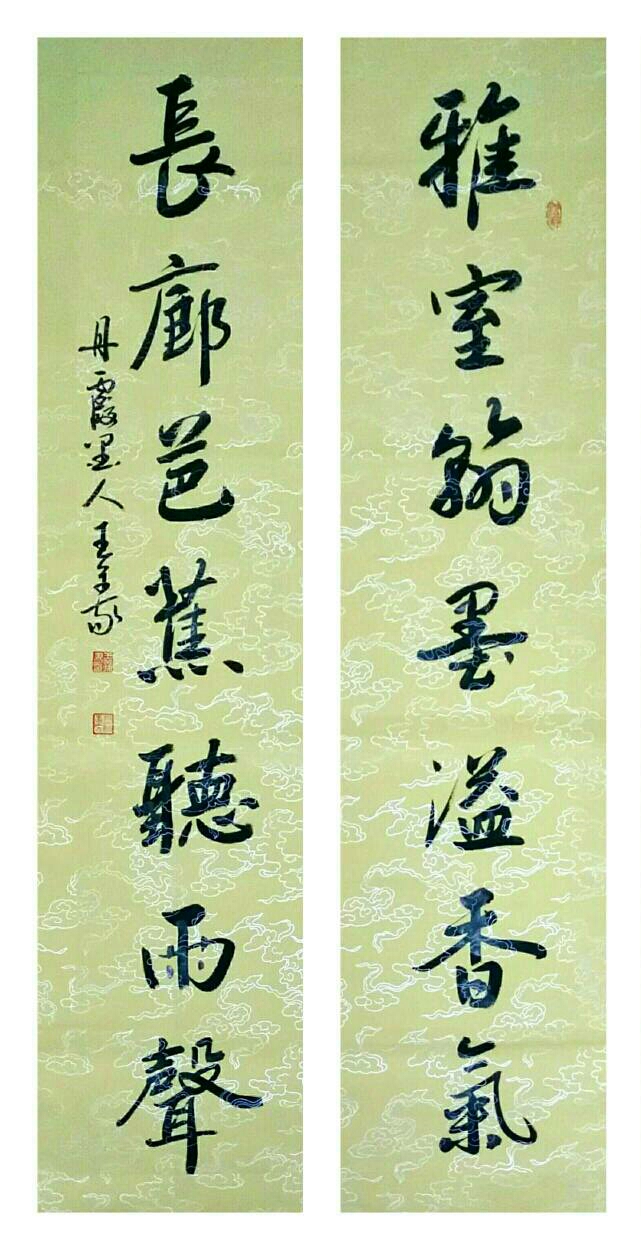 雅室翰墨溢香氣
長廊芭蕉聽雨聲
丹霞墨人王